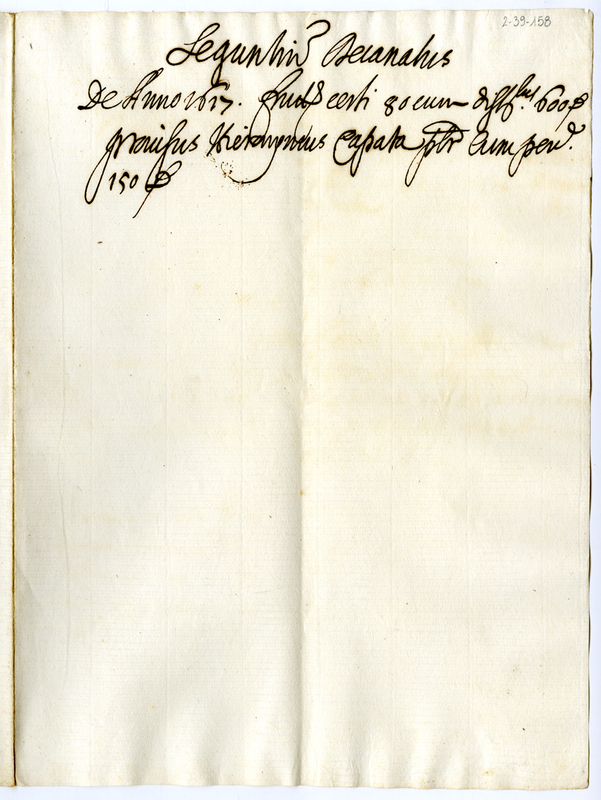 2-39-158
Seguntin Decanatus
De Anno 1617. fruct certi 80 cum distl 600
provisus Hieronymus Capata pbr cum pen
150